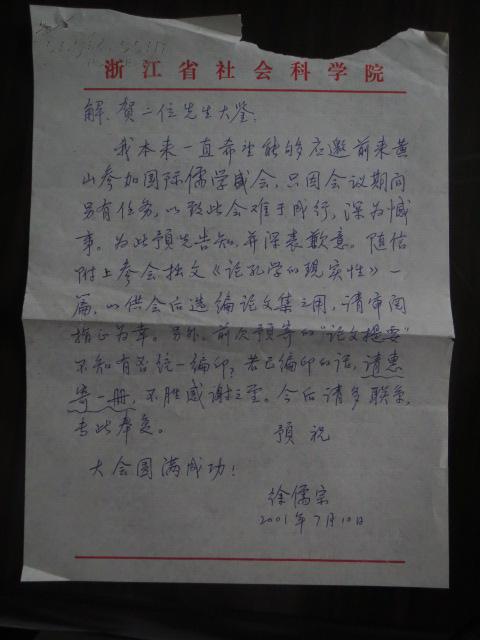 浙江省社会科学院
解、贺二位先生大鉴:
我本来一直希望能够应邀前来黄
山参加国际儒学盛会,只因会议期间
另有任务,以致此会难于成行,深为憾
事。为此预先告知,并深表歉意。随信
附上参会拙文《论孔学的现实性》一
篇,以供会后选编论文集之用,请审阅
指正为幸。另外,前次预寄的“论文提要”
不知有否统一编印?若已编印的话,请惠
寄一册,不胜感谢之至。今后请多联系,
专此奉复。 预祝
大会圆满成功!
徐儒宗
2001年7月10日